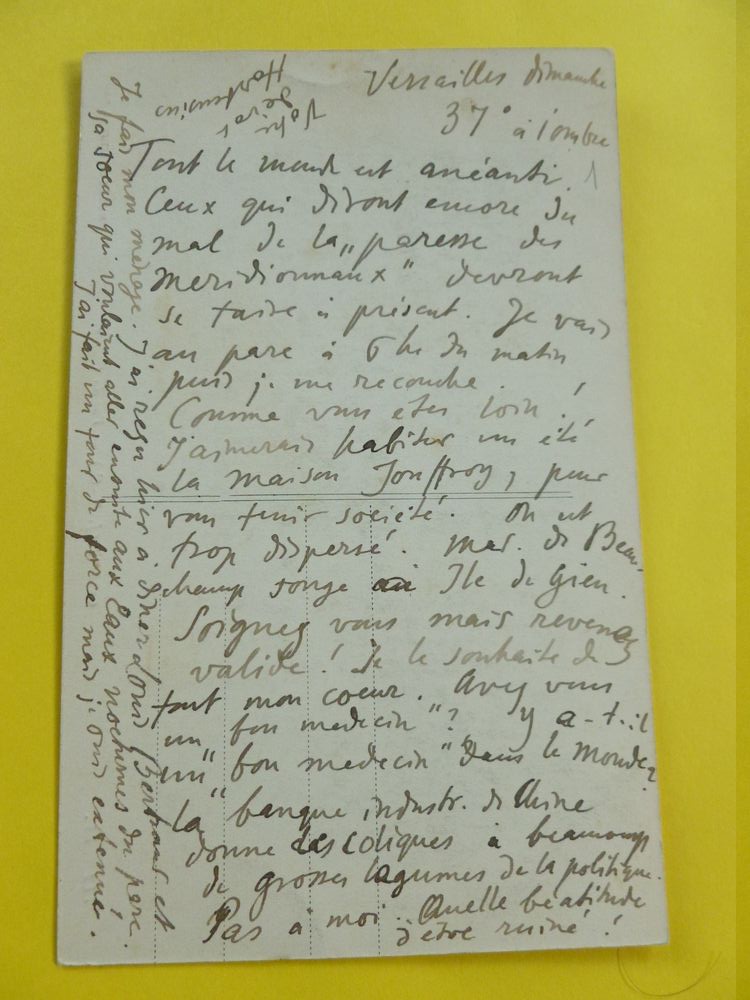 Versailles dimanche
37° à l'ombre
Tout le monde est anéanti.
Ceux qui diront encore du
mal de la „paresse des
meridionnaux" devront
se taire à présent. Je vais
au parc à 6 h du matin
puis je me recouche.
Comme vous êtes loin !
J'aimerais habiter un été
la maison Jouffroy, pour
vous tenir société. On est
trop dispersé. Mad. de Beau-
champ songe à Ile de Gien.
Soignez vous mais revenez
valide ! Je le souhaite de
tout mon coeur. Avez vous
un "bon medecin" ? Y a-t-il
un "bon medecin" dans le monde ?
La banque industr. de Chine
donne des coliques à beaucoup
de grosses legumes de la politique.
Pas à moi. Quelle béatitude
d'être ruiné !
Je fais mon ménage. J'ai reçu hier à diner Louis Bertrand et
sa soeur qui voulaient aller ensuite aux Eaux nocturnes du parc.
J'ai fait un tour de force mais je suis exténué.